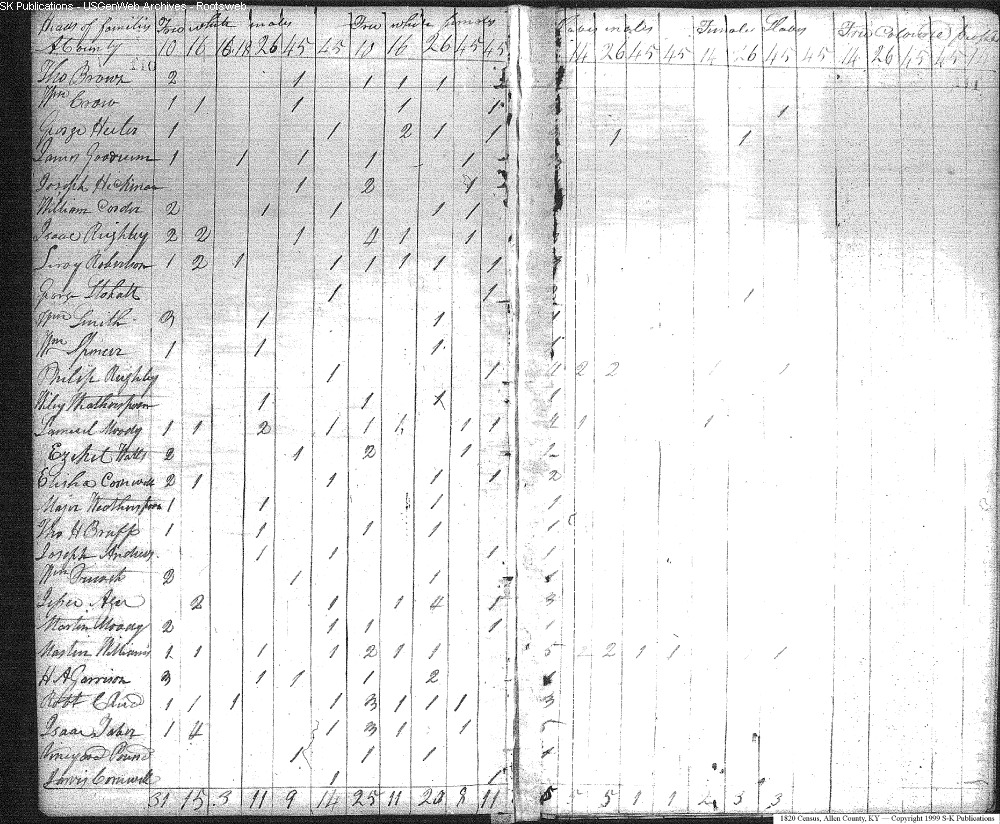 SK Publications - USGenWeb Archives - Rootsweb
Heads of families Free white males Free white females Slaves males Females Slaves Free Colored people
A County 10 16 16.18 26 45 45 10 16 26 45 45 14 26 45 45 14 26 45 45 14 26 45 45
110
Tho Brown 2 1 1 1 1
Wm Crow 1 1 1 1 1 1
George 1 1 2 1 1 1 1
James Goodrum 1 1 1 1 1
Joseph Hickman 1 2 1
William 2 1 1 1 1
Isaac Rughby 2 2 1 4 1 1
Leroy Roberson 1 2 1 1 1 1 1 1
George Stohalt 1 1 1
Wm Smith 3 1 1 1
Wm Spencer 1 1 1 1
Philip Rughby 1 1 2 2 1 1
Wiley Weatherspoon 1 1 1 1
Samuel Moody 1 1 2 1 1 1 1 1 4 1 1
Ezekel Watts 2 1 2 1 1
Elisha Cornwell 2 1 1 1 1 2
Major Weatherspoon 1 1 1 1
Tho H Bruff 1 1 1 1 1
Joseph Andrews 1 1 1 1
Wm 2 1 1 1
Ager 2 1 1 4 1 3
Martin Moody 2 1 1 1 1
Martin Williams 1 1 1 1 2 1 1 5 2 2 1 1 1
H A Garrison 3 1 1 1 2
Robt 1 1 1 1 3 1 1 1 3
Isaac Tabor 1 4 1 3 1 1
Pound 1 1 1
Jarvis Cornwell 1 1
31 15 3 11 9 14 25 11 20 8 11 5 5 5 1 1 2 3 3
1820 Census, Allen County, KY — Copyright 1999 S-K Publications